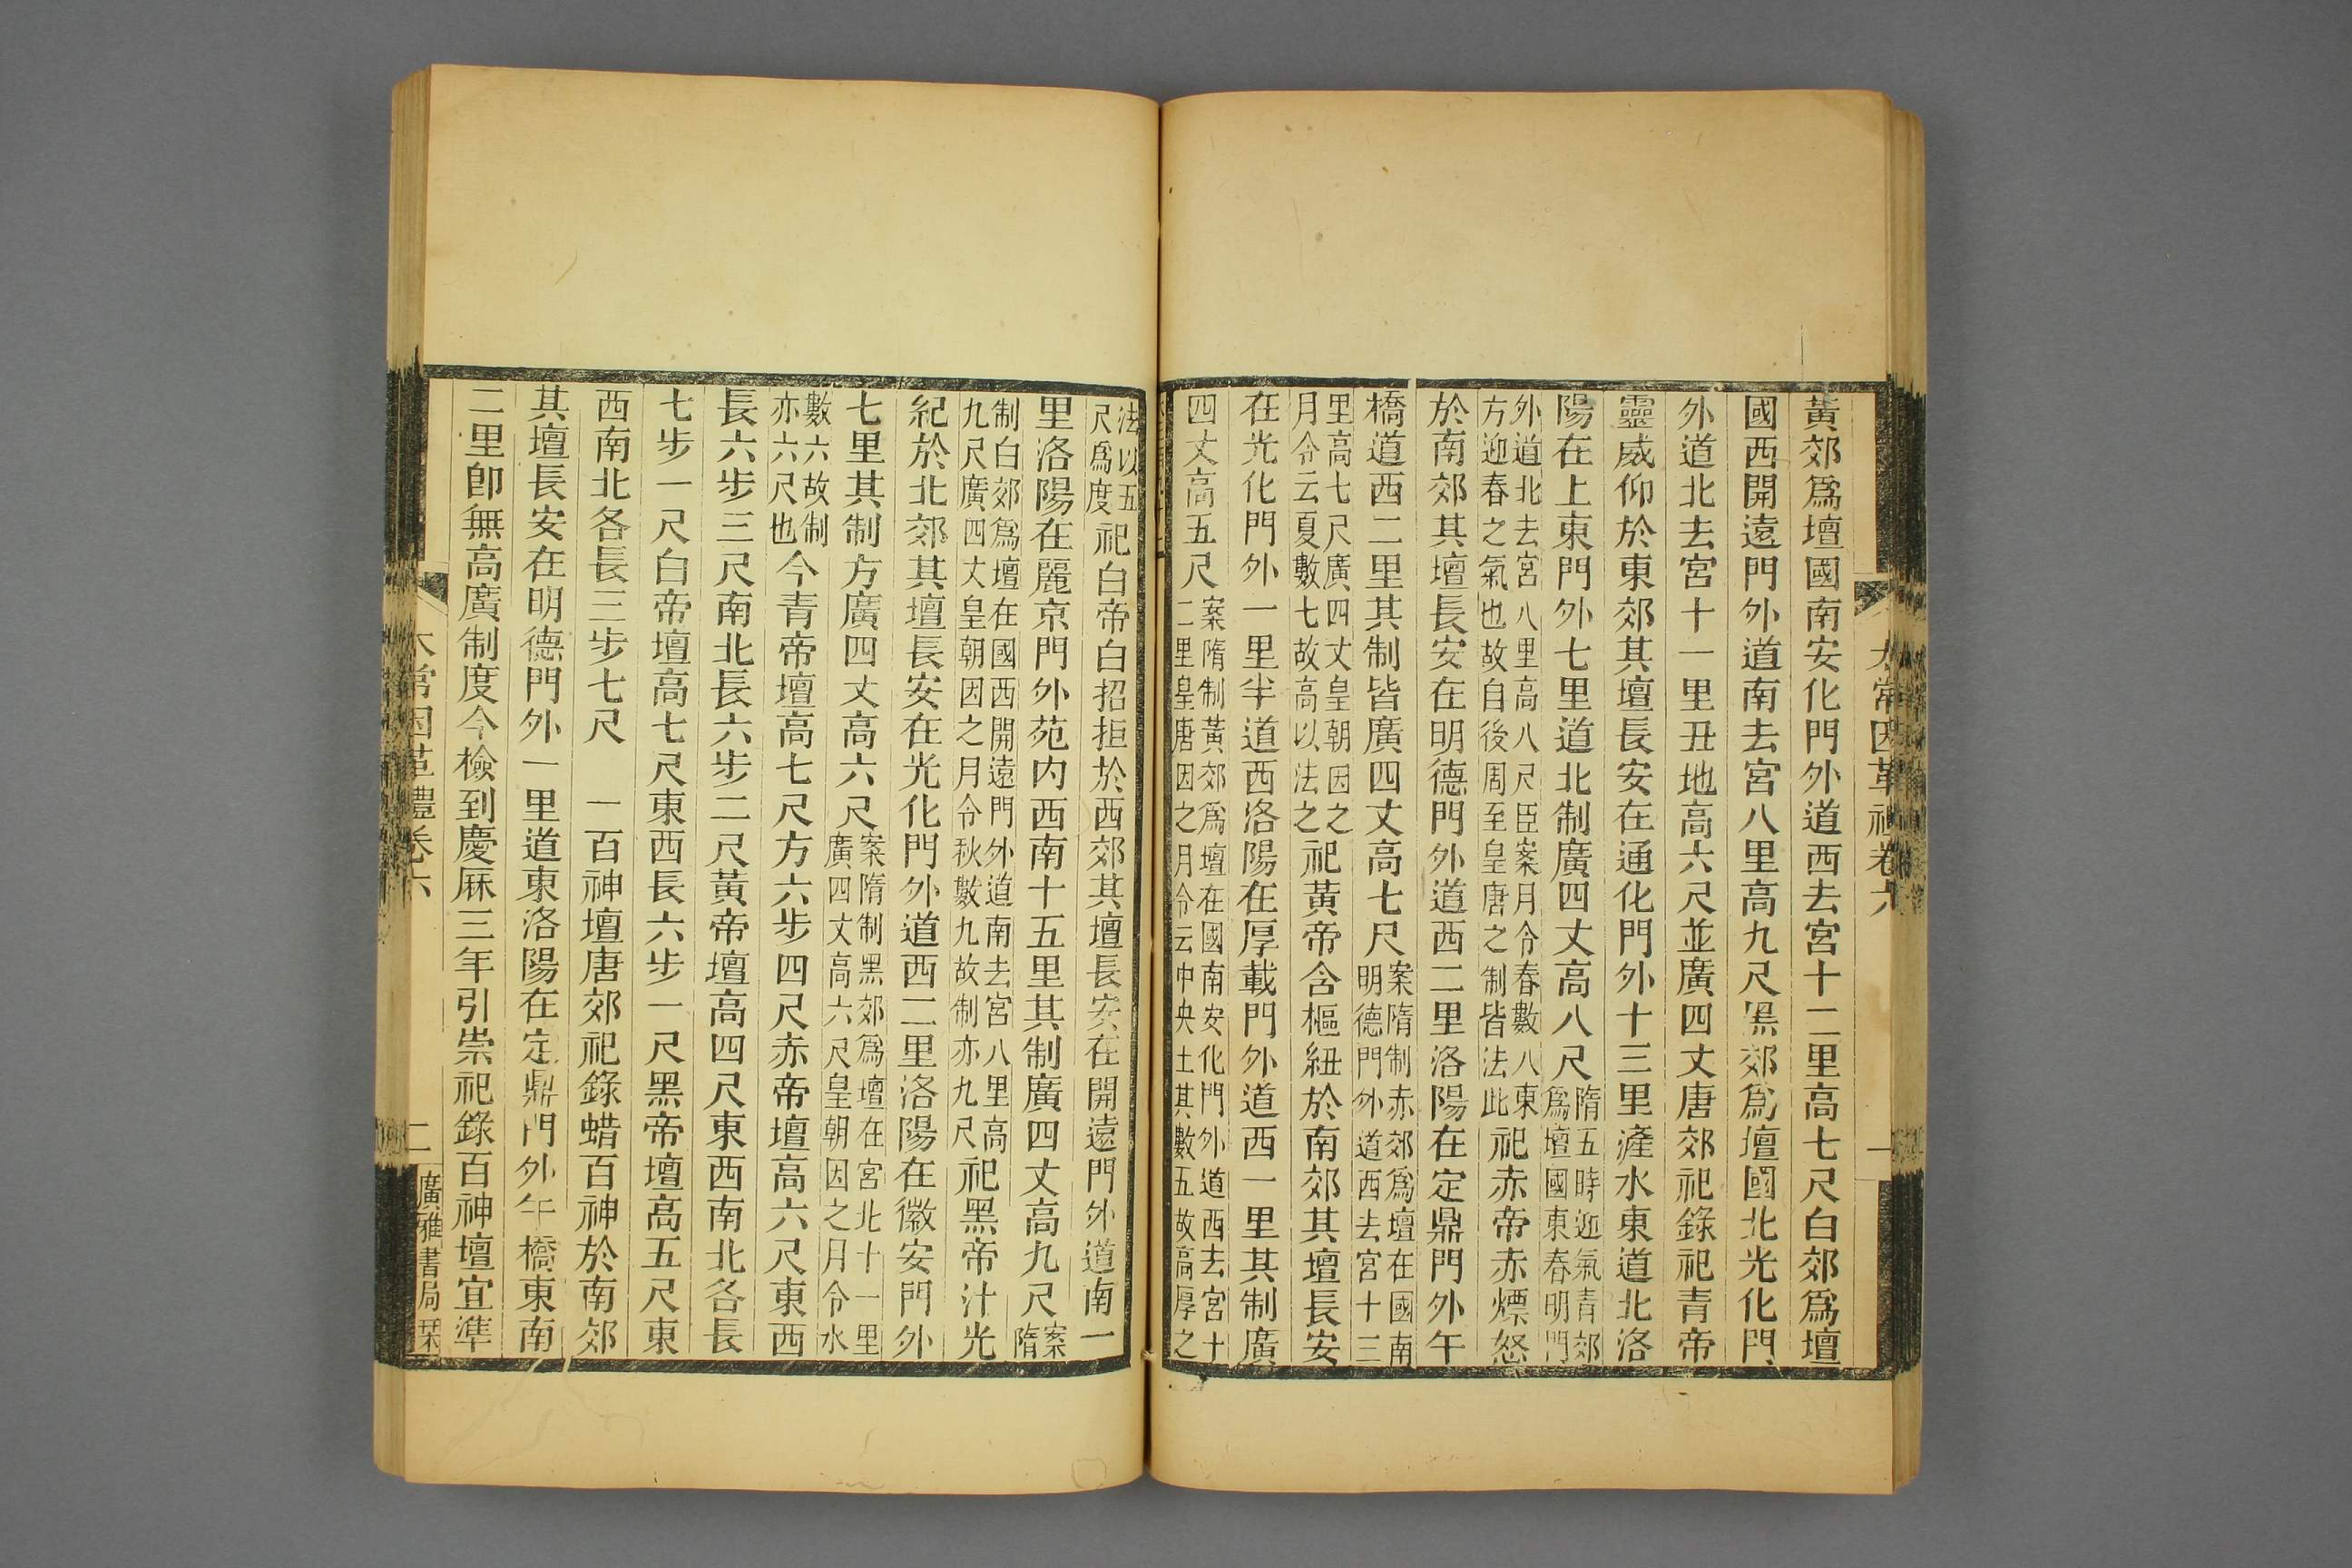 太常因革禮卷六
一
黃郊爲壇國南安化門外道西去宮十二里高七尺白郊爲壇
國西開遠門外道南去宮八里高九尺黑郊爲壇國北光化門
外道北去宮十一里丑地高六尺並廣四丈唐郊祀錄祀青帝
靈威仰於東郊其壇長安在通化門外十三里滻水東道北洛
陽在上東門外七里道北制廣四丈高八尺隋五時迎氣青郊爲壇國東春明門
外道北去宮八里高八尺臣案月令春數八東方迎春之氣也故自後周至皇唐之制皆法此祀赤帝赤熛怒
於南郊其壇長安在明德門外道西二里洛陽在定鼎門外午
橋道西二里其制皆廣四丈高七尺案隋制赤郊爲壇在國南明德門外道西去宮十三
里高七尺廣四丈皇朝因之月令云夏數七故高以法之祀黃帝含樞紐於南郊其壇長安
在光化門外一里半道西洛陽在厚載門外道西一里其制廣
四丈高五尺案隋制黃郊爲壇在國南安化門外道西去宮十二里皇唐因之月令云中央土其數五故高厚之
法以五尺爲度祀白帝白招拒於西郊其壇長安在開遠門外道南一
里洛陽在麗京門外苑内西南十五里其制廣四丈高九尺案隋
制白郊爲壇在國西開遠門外道南去宮八里高九尺廣四丈皇朝因之月令秋數九故制亦九尺祀黑帝汁光
紀於北郊其壇長安在光化門外道西二里洛陽在徽安門外
七里其制方廣四丈高六尺案隋制黑郊爲壇在宮北十一里廣四丈高六尺皇朝因之月令水
數六故制亦六尺也今青帝壇高七尺方六步四尺赤帝壇高六尺東西
長六步三尺南北長六步二尺黃帝壇高四尺東西南北各長
七步一尺白帝壇高七尺東西長六步一尺黑帝壇高五尺東
西南北各長三步七尺　一百神壇唐郊祀錄蜡百神於南郊
其壇長安在明德門外一里道東洛陽在定鼎門外午橋東南
二里卽無高廣制度今檢到慶厤三年引崇祀錄百神壇宜準
太常因革禮卷六
二
廣雅書局栞